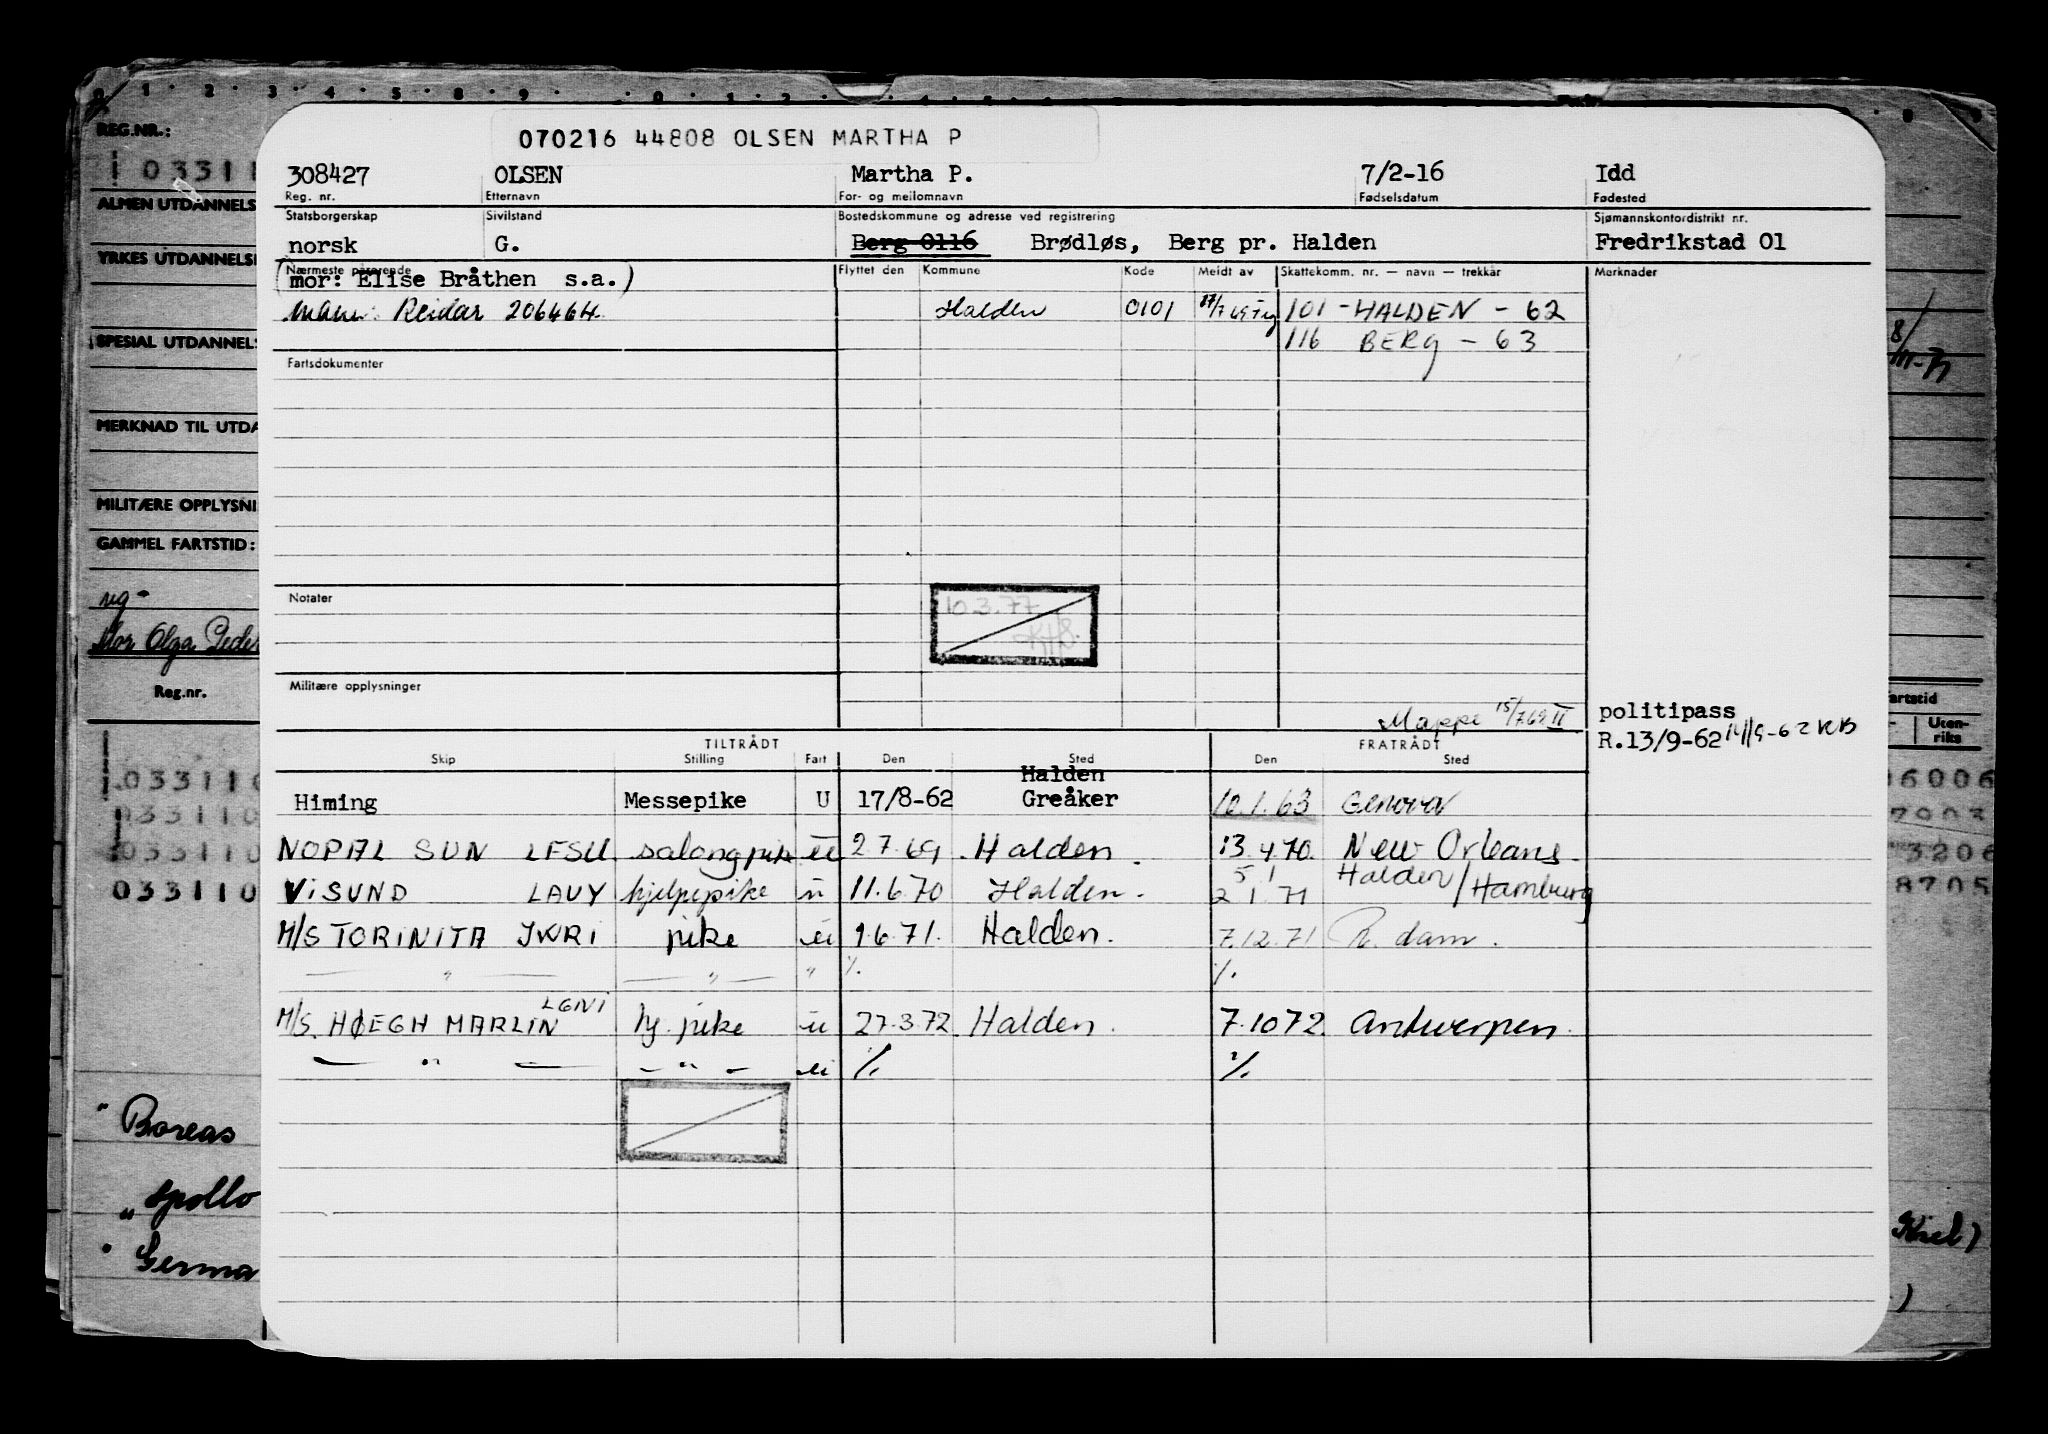 070216 44808 OLSEN MARTHA P
308427 OLSEN Martha P. 7/2-16 Idd
Reg. nr. Etternavn For- og mellomnavn Fødselsdatum Fødested
Statsborgerskap Sivilstand Bostedskommune og adresse ved registrering Sjømannskontordistrikt nr.
norsk G. Berg 0116 Brødløs, Berg pr. Halden Fredrikstad 01
Nærmeste pårørende Flyttet den Kommune Kode Meldt av Skattekomm. nr. — navn — trekkår Merknader
(mor: Elise Bråthen s.a.)
Mann: Reidar 206464 Halden 0101 101 - HALDEN - 62
116 BERG - 63
Fartsdokumenter
10.3.77
Notater
Militære opplysninger
Mappe 15/7 69 II politipass
R.13/9-62
TILTRÅDT FRATRÅDT
Skip Stilling Fart Den Sted Den Sted
Halden
Himing Messepike U 17/8-62 Greåker 10.1.63 Genova
NOPAL SUN LFSU salongpike u 2 7.69 Halden 13.4.70 New Orleans
5 1 Halden/
VISUND LAUY hjelpepike u 11.6.70 Halden. 2 1.71 Hamburg
M/S TORINITA JWRI pike u 9.6.71. Halden. 7.12.71 R.dam.
— " — — " — " %. %.
LGNI
M/S. HØEGH MARLIN hj. pike u 27.3.72 Halden. 7.10 72. Antwerpen.
— " — — " — u %. %.
REG.NR.:
0 3 3 1 1
ALMEN UTDANNELS
YRKES UTDANNELS
SPESIAL UTDANNELS
MERKNAD TIL UTDA
MILITÆRE OPPLYSNI
GAMMEL FARTSTID:
Mor Olga Peder
Reg.nr.
0 3 3 1 1 0
0 3 3 1 1 0
0 3 3 1 1 0
0 3 3 1 1 0
" Boreas
" Apollo
" Germa
artstid
Uten-
riks
6 0 0 6
7 0 0 3
3 2 0 6
8 7 0 5
Kiel)
)